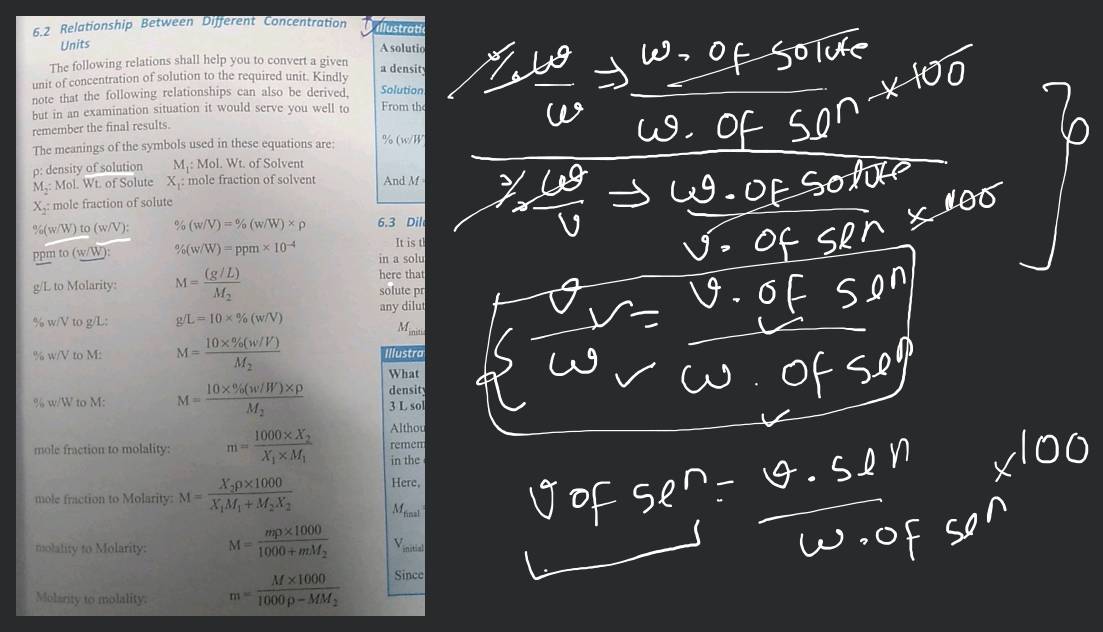 6.2 Relationship Between Different Concentration
Units
The following relations shall help you to convert a given
unit of concentration of solution to the required unit. Kindly
note that the following relationships can also be derived,
but in an examination situation it would serve you well to
remember the final results.
The meanings of the symbols used in these equations are:
ρ: density of solution M₁: Mol. Wt. of Solvent
M₂: Mol. Wt. of Solute X₁: mole fraction of solvent
X₂: mole fraction of solute
%(w/W) to (w/V): % (w/V) = % (w/W) × ρ
ppm to (w/W): %(w/W) = ppm × 10⁻⁴
g/L to Molarity: M = (g/L) / M₂
% w/V to g/L: g/L = 10 × % (w/V)
% w/V to M: M = 10×%(w/V) / M₂
% w/W to M: M = 10×%(w/W)×ρ / M₂
mole fraction to molality: m = 1000×X₂ / X₁×M₁
mole fraction to Molarity: M = X₂ρ×1000 / X₁M₁+M₂X₂
molality to Molarity: M = mρ×1000 / 1000+mM₂
Molarity to molality: m = M×1000 / 1000ρ−MM₂
A solutio
a density
Solution
From the
% (w/W
And M
6.3 Dil
It is th
in a solu
here that
solute pr
any dilut
M initia
Illustra
What
density
3 L sol
Althou
remem
in the
Here,
M final
V initial
Since
% w/w ⇒ w. of solute / w. of sln × 100
% w/v ⇒ w. of solute / v. of sln × 100
v / w = v. of sln / w. of sln
v of sln = v. sln / w. of sln × 100